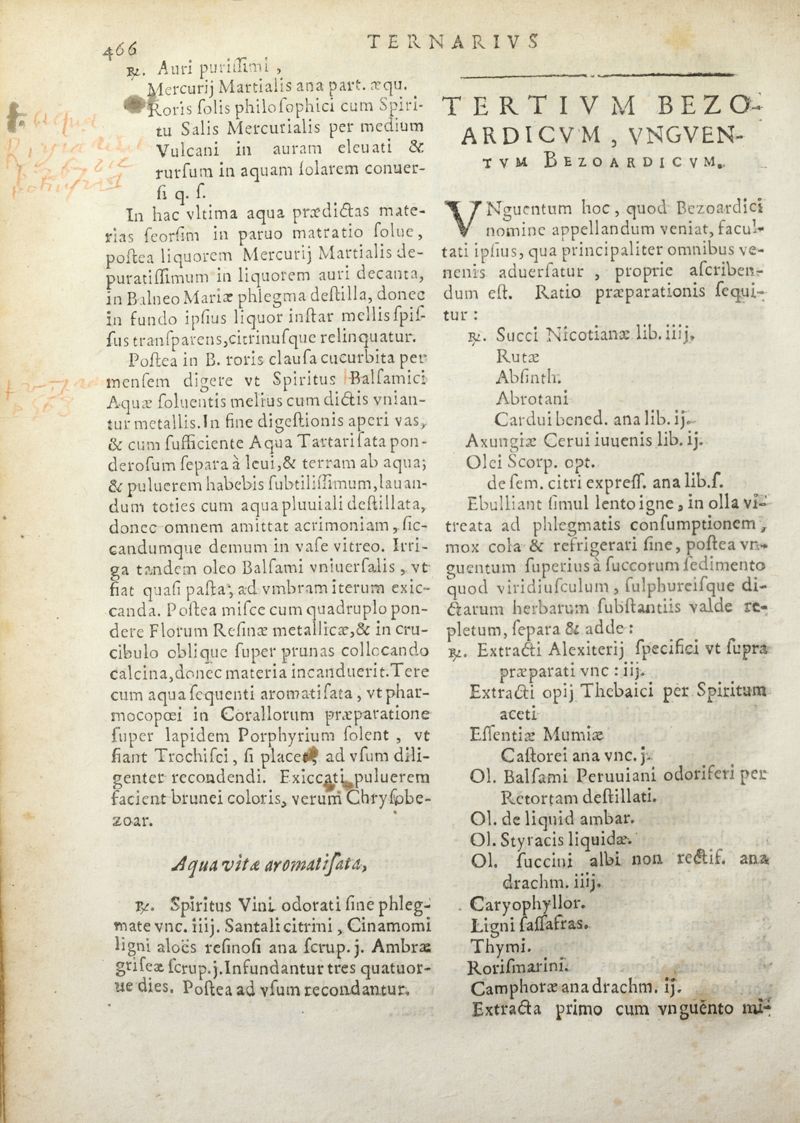 466
TERNARIVS
℞. Auri puriſſimi ,
Mercurij Martialis ana part. æqu.
Roris ſolis philoſophici cum Spiri-
tu Salis Mercurialis per medium
Vulcani in auram eleuati &
rurſum in aquam ſolarem conuer-
ſi q. ſ.
In hac vltima aqua prædictas mate-
rias ſeorſim in paruo matratio ſolue,
poſtea liquorem Mercurij Martialis de-
puratiſſimum in liquorem auri decanta,
in Balneo Mariæ phlegma deſtilla, donec
in fundo ipſius liquor inſtar mellis ſpiſ-
ſus tranſparens,citrinuſque relinquatur.
Poſtea in B. roris clauſa cucurbita per
menſem digere vt Spiritus Balſamici
Aquæ ſoluentis melius cum dictis vnian-
tur metallis.In fine digeſtionis aperi vas,
& cum ſufficiente Aqua Tartariſata pon-
deroſum ſepara à leui,& terram ab aqua;
& puluerem habebis ſubtiliſſimum,lauan-
dum toties cum aqua pluuiali deſtillata,
donec omnem amittat acrimoniam, ſic-
candumque demum in vaſe vitreo. Irri-
ga tandem oleo Balſami vniuerſalis , vt
fiat quaſi paſta, ad vmbram iterum exic-
canda. Poſtea miſce cum quadruplo pon-
dere Florum Reſinæ metallicæ,& in cru-
cibulo oblique ſuper prunas collocando
calcina,donec materia incanduerit.Tere
cum aqua ſequenti aromatiſata , vt phar-
mocopœi in Corallorum præparatione
ſuper lapidem Porphyrium ſolent , vt
fiant Trochiſci, ſi placet, ad vſum dili-
genter recondendi. Exiccati puluerem
facient brunei coloris, verum Chryſobe-
zoar.
Aqua vitæ aromatiſata,
℞. Spiritus Vini odorati ſine phleg-
mate vnc. iiij. Santali citrini , Cinamomi
ligni aloës reſinoſi ana ſcrup. j. Ambræ
griſeæ ſcrup.j.Infundantur tres quatuor-
ue dies. Poſtea ad vſum recondantur.
TERTIVM BEZO-
ARDICVM , VNGVEN-
TVM BEZOARDICVM.
VNguentum hoc, quod Bezoardici
nomine appellandum veniat, facul-
tati ipſius, qua principaliter omnibus ve-
nenis aduerſatur , proprie aſcriben-
dum eſt. Ratio præparationis ſequi-
tur :
℞. Succi Nicotianæ lib. iiij.
Rutæ
Abſinth.
Abrotani
Cardui bened. ana lib. ij.
Axungiæ Cerui iuuenis lib. ij.
Olei Scorp. opt.
de ſem. citri expreſſ. ana lib.ſ.
Ebulliant ſimul lento igne, in olla vi-
treata ad phlegmatis conſumptionem,
mox cola & refrigerari ſine, poſtea vn-
guentum ſuperius à ſuccorum ſedimento
quod viridiuſculum, ſulphureiſque di-
ctarum herbarum ſubſtantiis valde re-
pletum, ſepara & adde :
℞. Extracti Alexiterij ſpecifici vt ſupra
præparati vnc : iij.
Extracti opij Thebaici per Spiritum
aceti
Eſſentiæ Mumiæ
Caſtorei ana vnc. j.
Ol. Balſami Peruuiani odoriferi per
Retortam deſtillati.
Ol. de liquid ambar.
Ol. Styracis liquidæ.
Ol. ſuccini albi non rectif. ana
drachm. iiij.
Caryophyllor.
Ligni ſaſſafras.
Thymi.
Roriſmarini.
Camphoræ ana drachm. ij.
Extracta primo cum vnguento mi-